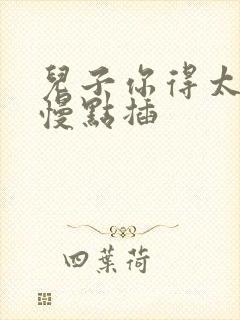 兒子你得太
慢點插
四葉荷